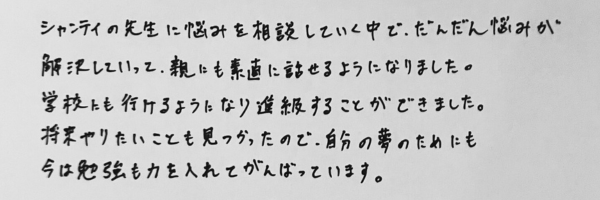 シャンティの先生に悩みを相談していく中で、だんだん悩みが
解決していって、親にも素直に話せるようになりました。
学校にも行けるようになり進級することができました。
将来やりたいことも見つかったので、自分の夢のためにも
今は勉強も力を入れてがんばっています。